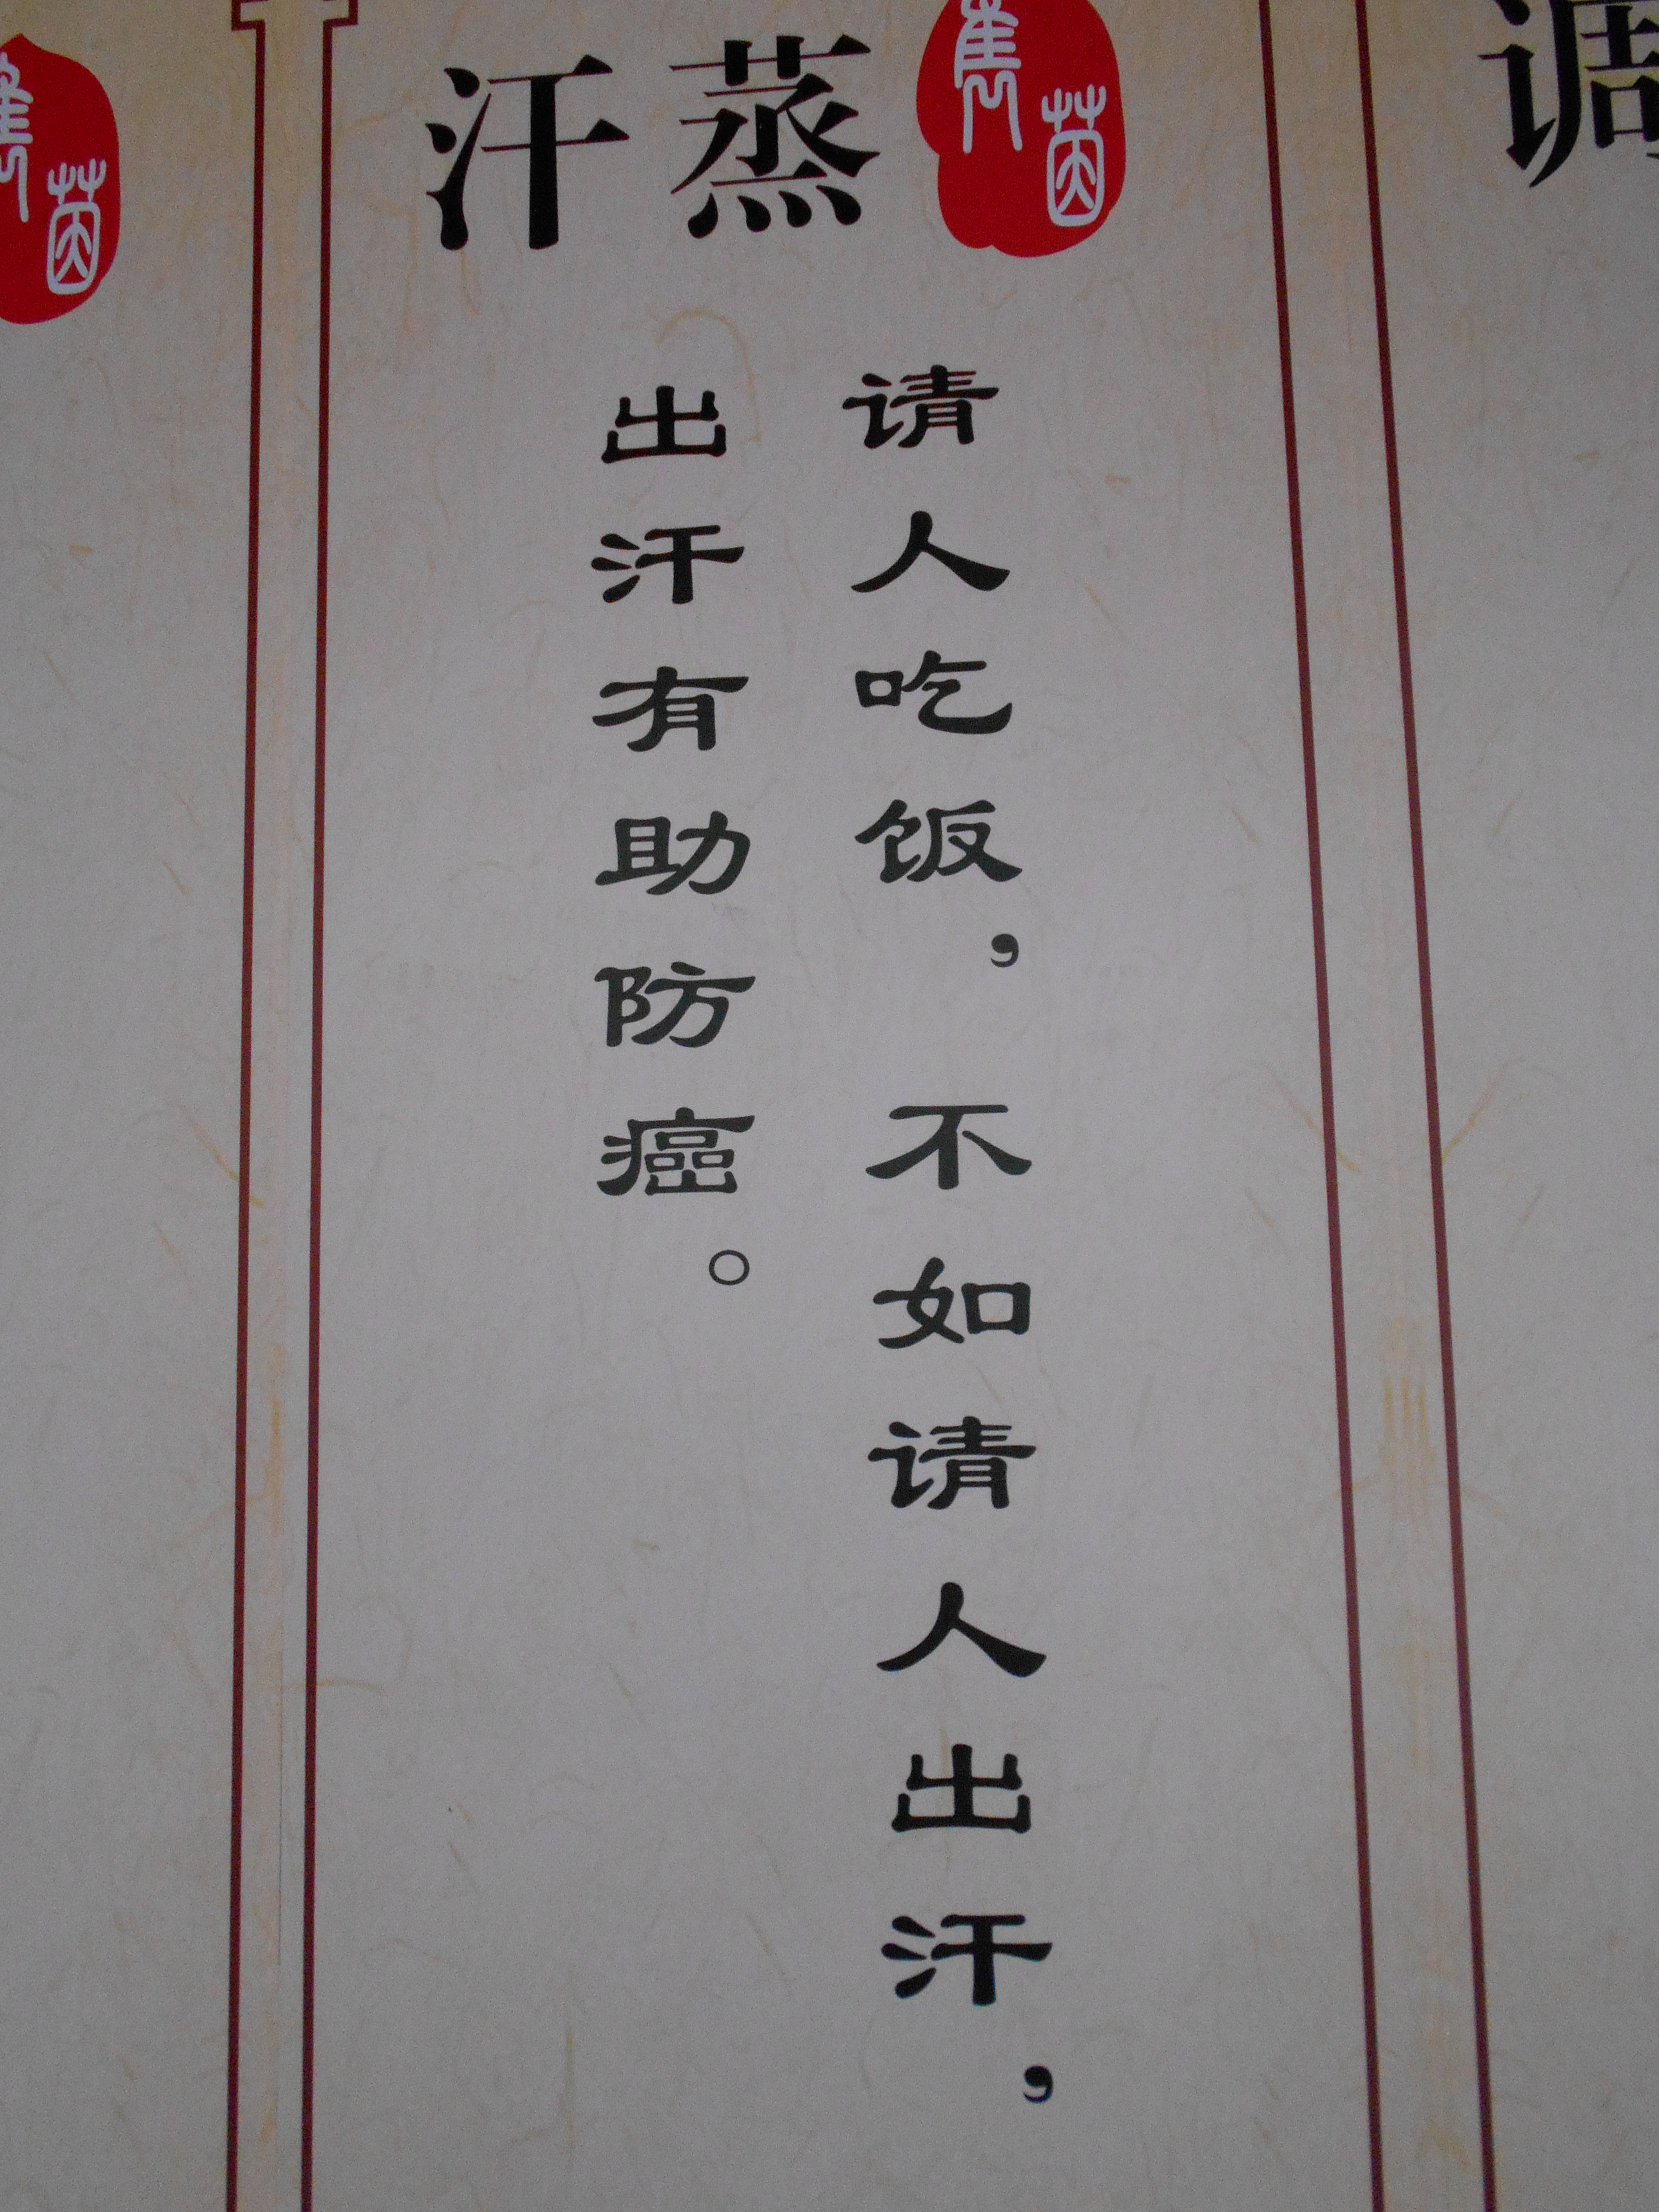 汗蒸
请人吃饭，不如请人出汗，
出汗有助防癌。
调